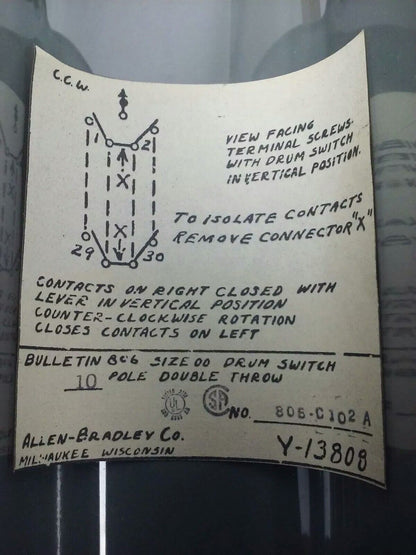 C.C.W.
1 2
X
X
29 30
VIEW FACING
TERMINAL SCREWS.
WITH DRUM SWITCH
IN VERTICAL POSITION.
TO ISOLATE CONTACTS
REMOVE CONNECTOR "X"
CONTACTS ON RIGHT CLOSED WITH
LEVER IN VERTICAL POSITION
COUNTER-CLOCKWISE ROTATION
CLOSES CONTACTS ON LEFT
BULLETIN 806 SIZE 00 DRUM SWITCH
10 POLE DOUBLE THROW
UL SA NO. 806-C102 A
ALLEN-BRADLEY CO.
MILWAUKEE WISCONSIN
Y-13808